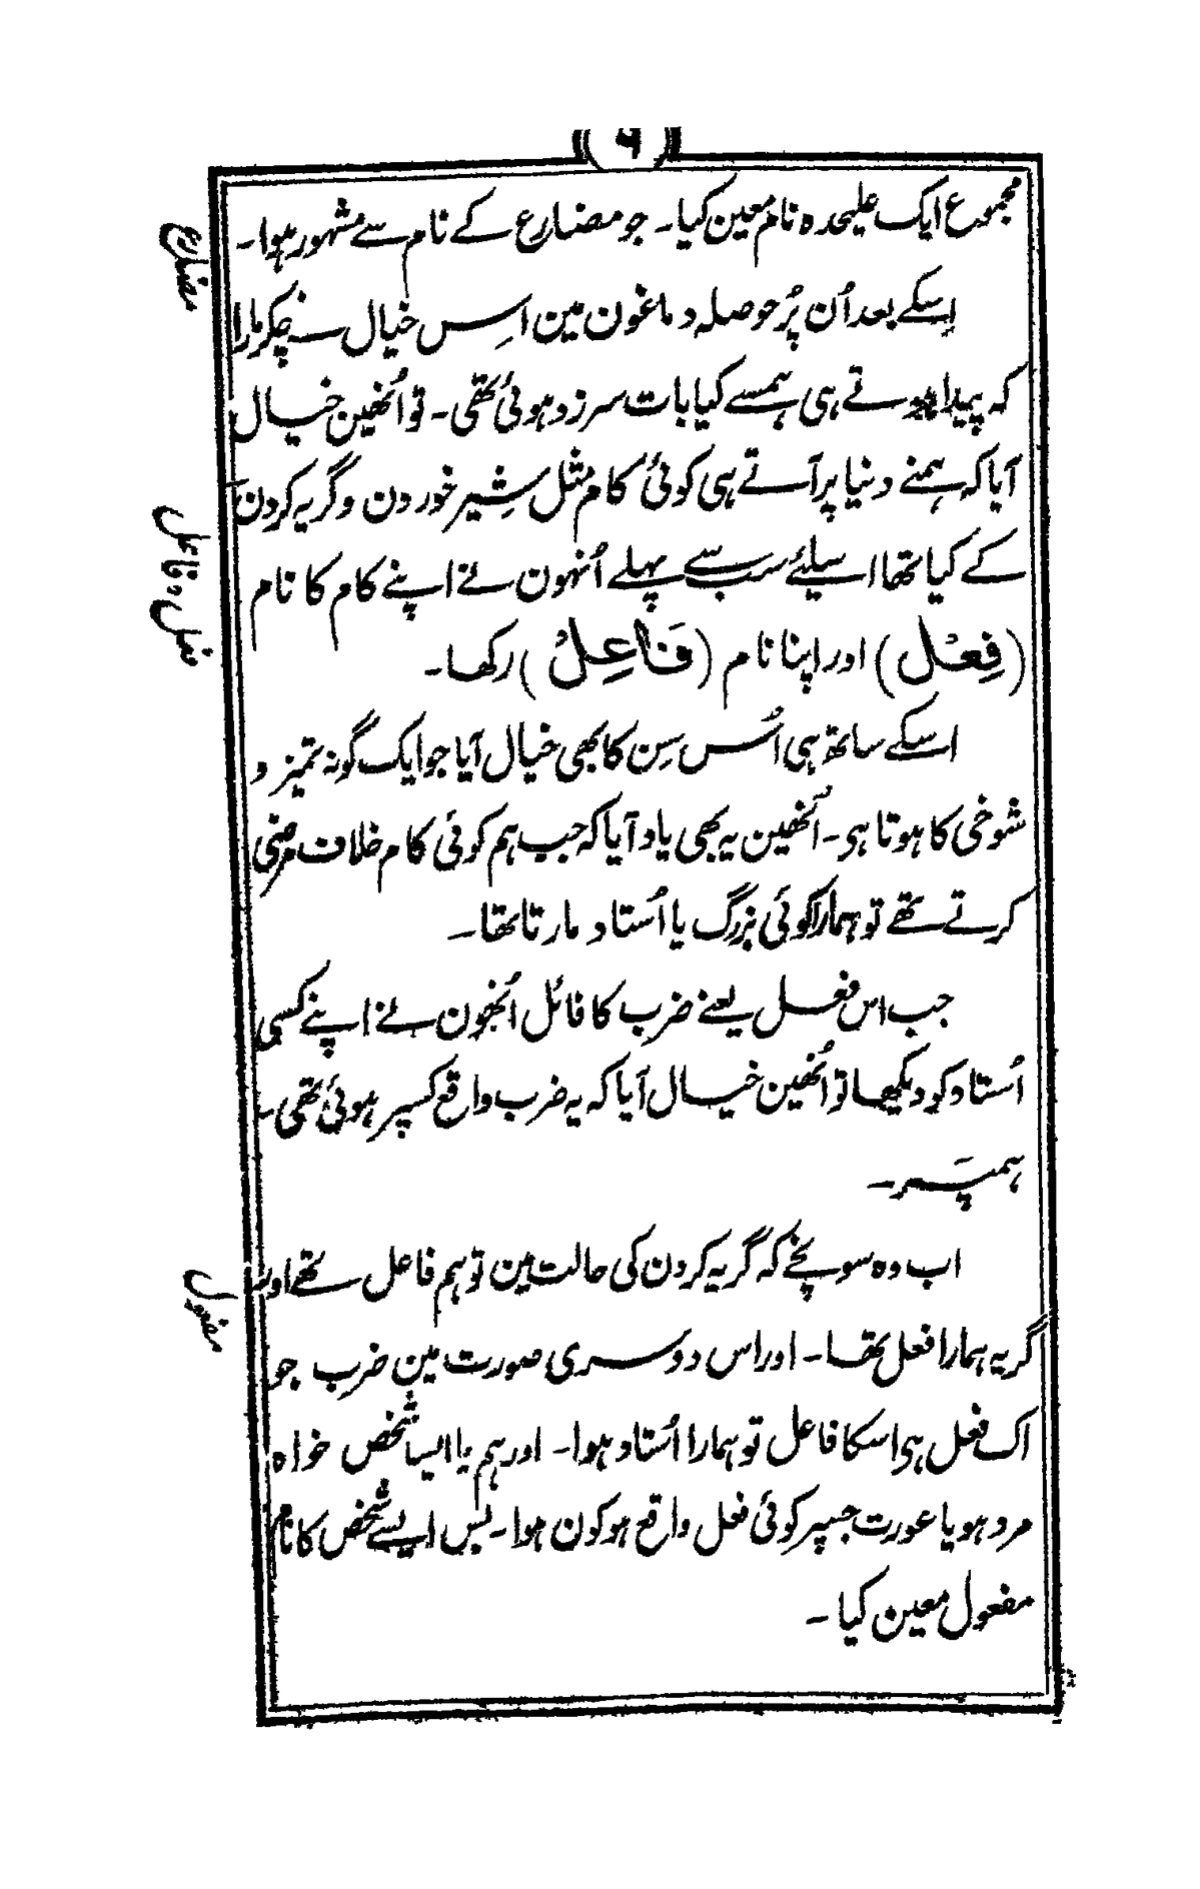 ۶
مجموع ایک علیحدہ نام معین کیا۔ جو مضارع کے نام سے مشہور ہوا۔
مضارع
اِسکے بعد اُن پُر حوصلہ دماغون مین اسِس خیال نے چکر مارا
کہ پیدا ہوتے ہی ہمسے کیا بات سرزد ہوئی تھی۔ تو اُنھین خیال
آیا کہ ہمنے دنیا پر آتے ہی کوئی کام مثل شِیر خوردن و گریہ کردن
فعل و فاعل
کے کیا تھا اسیلئے سب سے پہلے اُنہون نے اپنے کام کا نام
(فِعْل) اور اپنا نام (فَاعِلْ) رکھا۔
اسکے ساتھ ہی اُس سِن کا بھی خیال آیا جو ایک گونہ تمیز و
شوخی کا ہوتا ہی۔ اُنھین یہ بھی یاد آیا کہ جب ہم کوئی کام خلاف مرضی
کرتے تھے تو ہمارا کوئی بزرگ یا اُستاد مارتا تھا۔
جب اس فعل یعنے ضرب کا فائل اُنھون نے اپنے کسی
اُستاد کو دیکھا تو اُنھین خیال آیا کہ یہ ضرب واقع کسپر ہوئی تھی۔
ہمپَر۔
اب وہ سوچے کہ گریہ کردن کی حالت مین تو ہم فاعل تھے اور
مفعول
گریہ ہمارا فعل تھا۔ اور اس دوسری صورت مین ضرب جو
اک فعل ہی اسکا فاعل تو ہمارا اُستاد ہوا۔ اور ہم یا ایسا شخص خواہ
مرد ہو یا عورت جسپر کوئی فعل واقع ہو کون ہوا۔ بس ایسے شخص کا نام
مفعول معین کیا۔